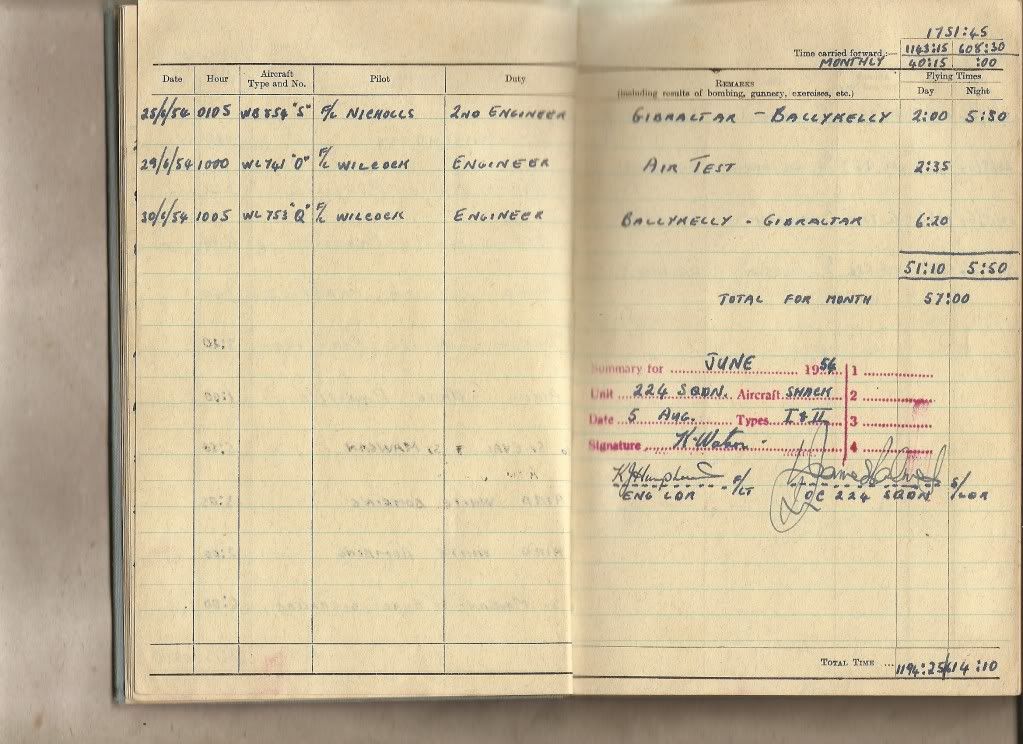 1751:45
Time carried forward:— 1143:15 608:30
MONTHLY 40:15 :00
Date Hour Aircraft Type and No. Pilot Duty REMARKS (including results of bombing, gunnery, exercises, etc.) Flying Times Day Night
25/6/54 0105 WB854 "S" F/L NICHOLLS 2ND ENGINEER GIBRALTAR - BALLYKELLY 2:00 5:50
29/6/54 1000 WL741 "O" F/L WILCOCK ENGINEER AIR TEST 2:35
30/6/54 1005 WL753 "Q" F/L WILCOCK ENGINEER BALLYKELLY - GIBRALTAR 6:20
51:10 5:50
TOTAL FOR MONTH 57:00
Summary for JUNE 1954 1
Unit 224 SQDN. Aircraft SHACK 2
Date 5 AUG. Types I & II 3
Signature K. Watson 4
F/LT
ENG LDR OC 224 SQDN S/LDR
TOTAL TIME ... 1194:25 614:10